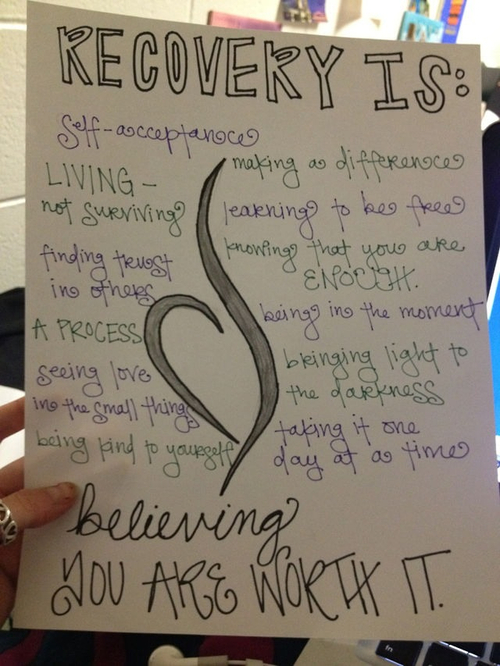 RECOVERY IS:
Self-acceptance
LIVING -
not surviving
finding trust
in others
A PROCESS
seeing love
in the small things
being kind to yourself
making a difference
learning to be free
knowing that you are
ENOUGH.
being in the moment
bringing light to
the darkness
taking it one
day at a time
believing
YOU ARE WORTH IT.
fn